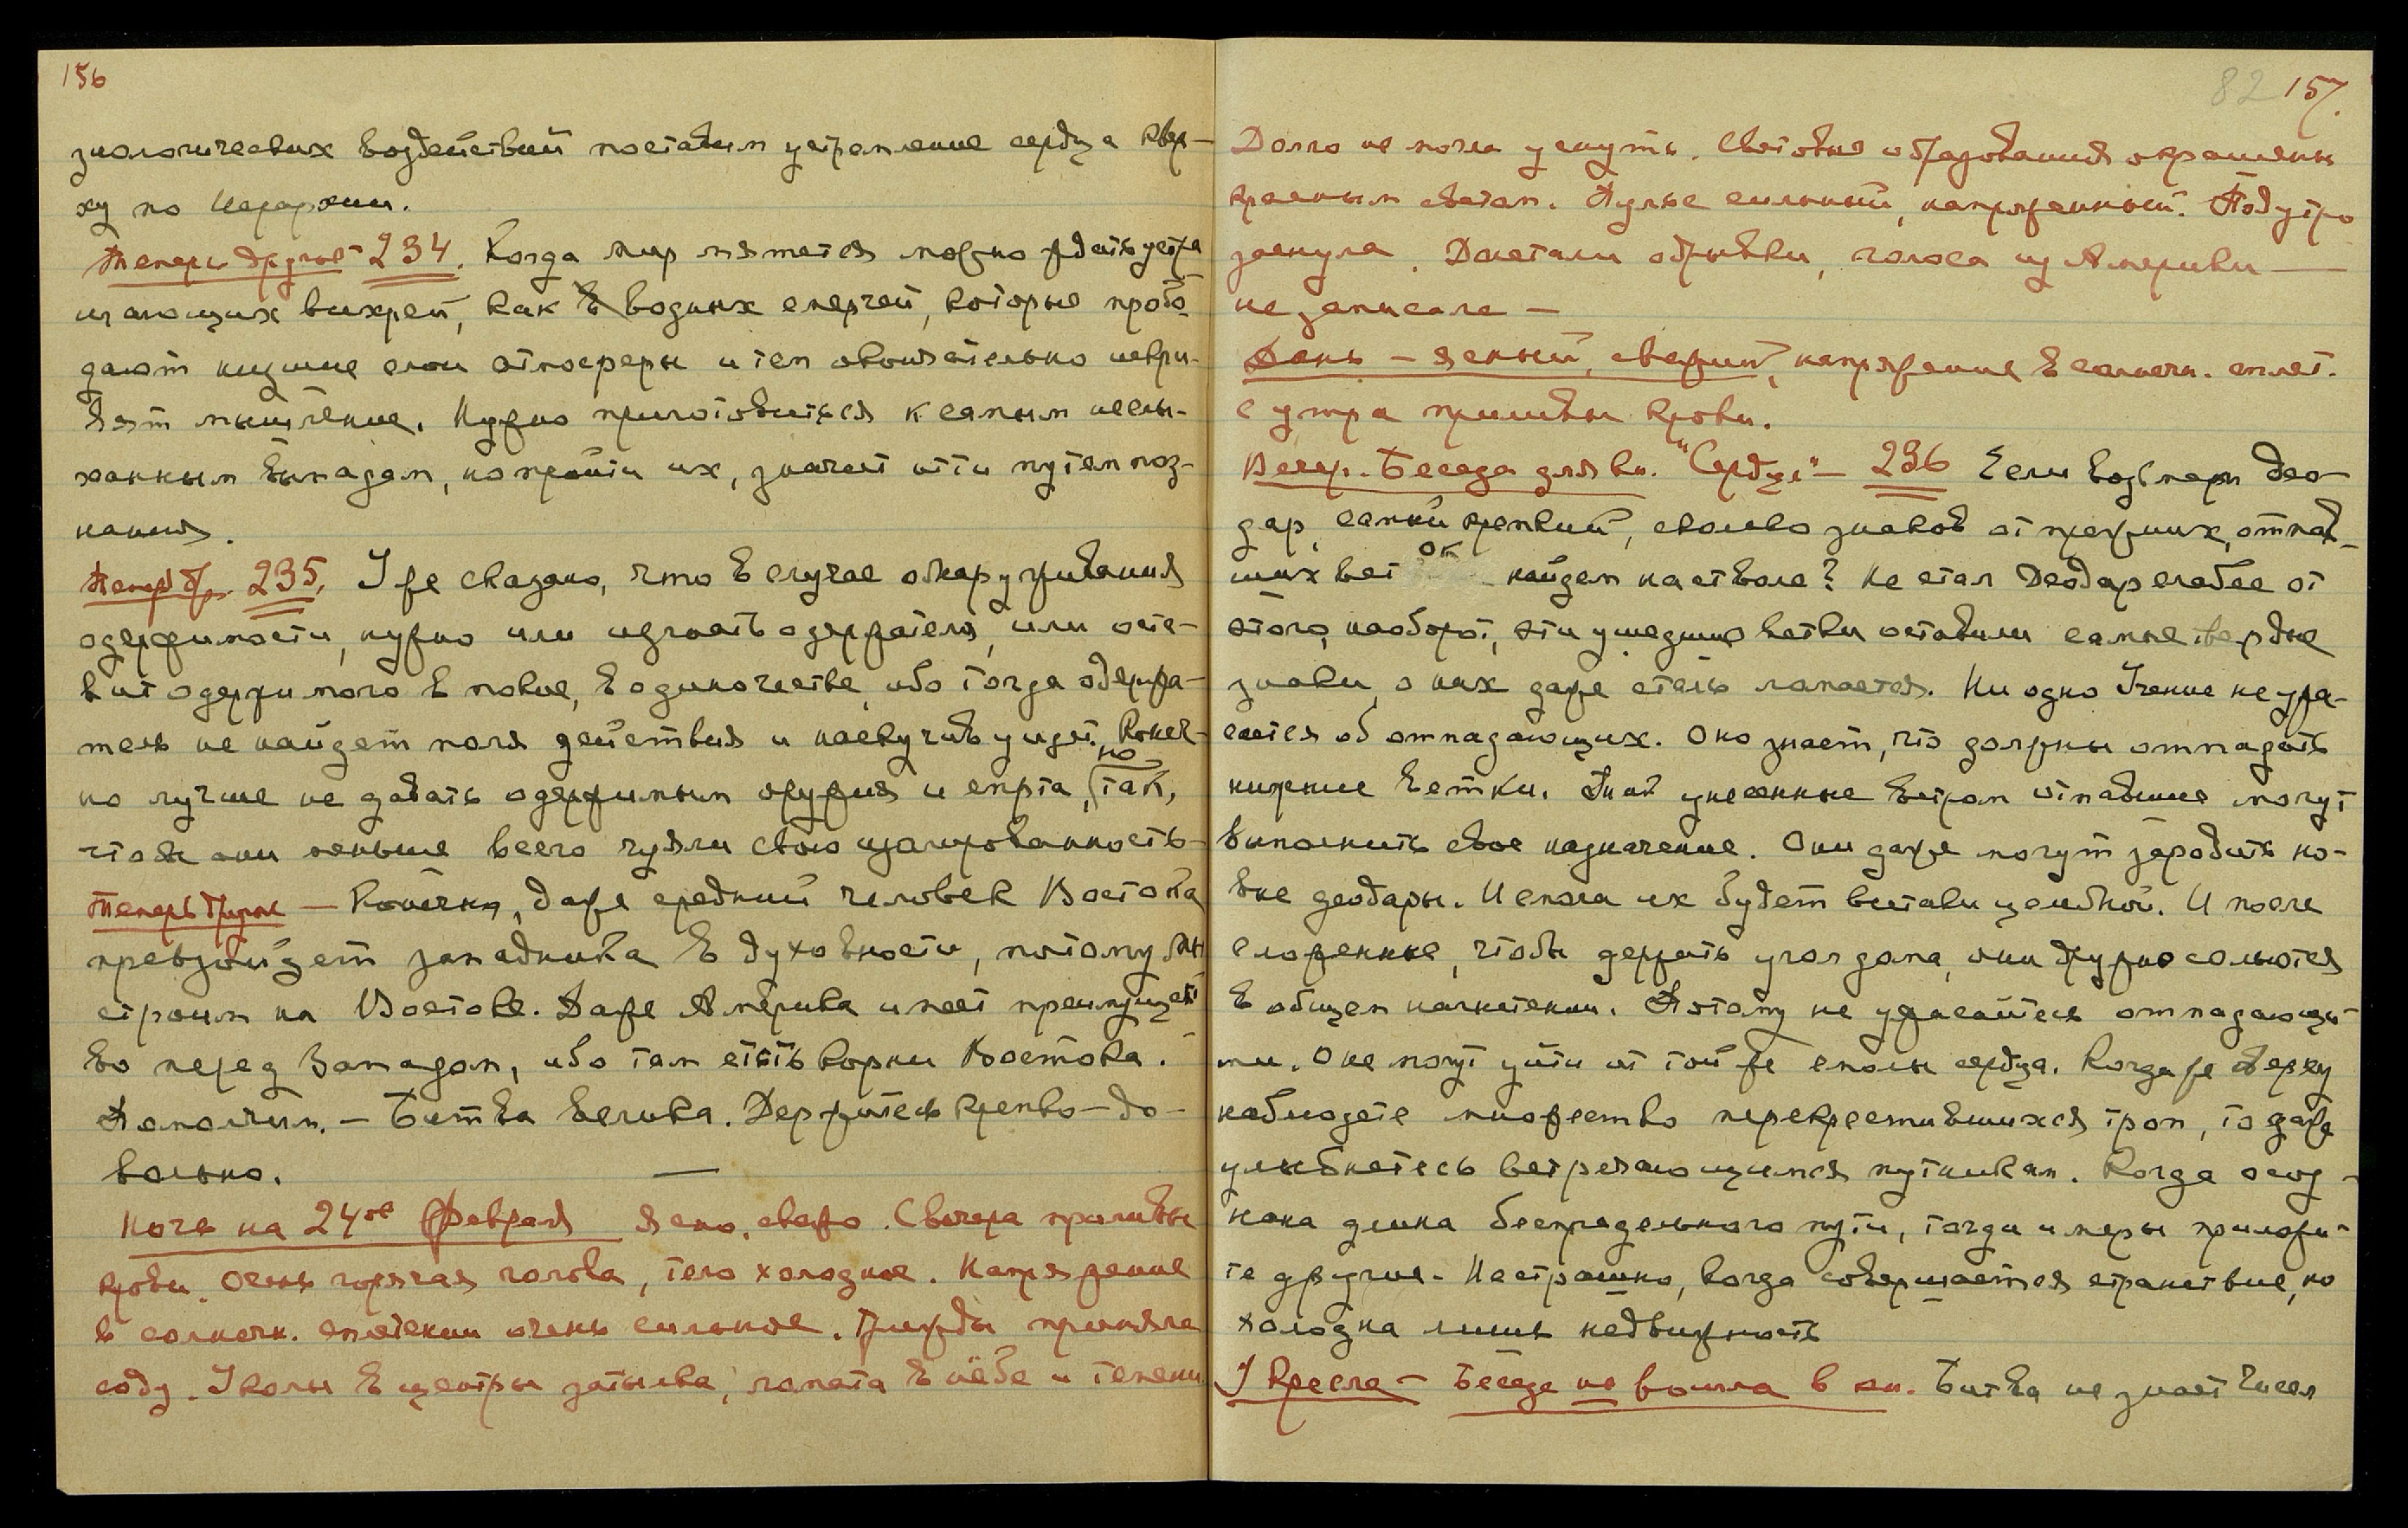 156
зиологических воздействий поставим устремление сердца квер-
ху по Иерархии.
Теперь другое - 234. Когда мир мятется можно ждать устра
шающих вихрей, как водных смерчей, которые пробо-
дают низшие слои атмосферы и тем окончательно искри-
вят мышление. Нужно приготовиться к самым неслы-
ханным выпадам, но пройти их, значит итти путем поз-
нания.
Теперь др. 235. Уже сказано, что в случае обнаруживания
одержимости, нужно или изгнать одержателя, или оста-
вить одержимого в покое, в одиночестве, ибо тогда одержа-
тель не найдет поля действия и наскучив уйдет, Конеч-
но лучше не давать одержимым оружия и спирта, но так,
чтобы они меньше всего чуяли свою изолированность-
Теперь другое — Конечно, даже средний человек Востока
превзойдет западника в духовности, потому Мы
строим на Востоке. Даже Америка имеет преимущест
во перед Западом, ибо там есть корни Востока.
Помолчим. — Битва велика. Держитесь крепко — до-
вольно. —
Ночь на 24ое Февраля ясно, свежо. С вечера приливы
крови. Очень горячая голова, тело холодное. Напряжение
в солнечн. сплетении очень сильное. Трижды приняла
соду. Уколы в центры затылка, лопата в нёбе и темени
82 157.
Долго не могла уснуть. Световые образования окрашены
красным светом. Пульс сильный, напряженный. Под утро
заснула. Долетали обрывки, голоса из Америки —
не записала —
День — ясный, свежий, напряжение в солнечн. сплет.
с утра приливы крови.
Вечер. Беседа для кн. "Сердце" — 236 Если возьмем део-
дар, самый крепкий, сколько знаков от прежних, отпав-
ших веток найдем на стволе? Не стал Деодар слабее от
этого, наоборот, эти ушедшие ветви оставили самые твердые
знаки, о них даже сталь ломается. Ни одно Учение не ужа-
сается об отпадающих. Оно знает, что должны отпадать
нижние ветки. Иные унесенные ветром отпавшие могут
выполнить свое назначение. Они даже могут зародить но-
вые деодары. И смола их будет всетаки целебной. И после
сложенные, чтобы держать угол дома, они дружно сольются
в общем начинании. Потому не ужасайтесь отпадающи-
ми. Они не могут уйти от той же смолы сердца. Когда же сверху
наблюдете множество перекрестившихся троп, то даже
улыбнетесь встречающимся путникам. Когда осоз-
нана длина беспредельного пути, тогда и меры приложи-
те другие. Не страшно, когда совершается странствие, но
холодна лишь недвижность
У Кресла — Беседа не вошла в кн. Битва не знает чисел